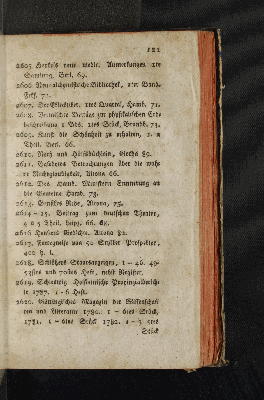 121
2605. Herkels neue medic. Anmerkungen 1ter
Sammlung. Berl. 69.
2606 Neue alchymistische Bibliothek, 1ter Band.
Frkf. 72.
2607. Der Eklecktiker. 1tes Quartal, Hamb. 71.
2608. Vermischte Beyträge zur physikalischen Erd-
beschreibung 1 Bds. 1tes Stück, Brandb. 73.
2609. Kunst die Schönheit zu erhalten, 1. u
Theil. Berl. 66.
2610. Noth und Hülfsbüchlein, Gotha 89.
2611. Betrachtungen über die wah-
re Rechtgläubigkeit, Altona 66.
2612. Des Hamb. Ministerii Ermahnung an
die Gemeine Hamb. 73.
2613. Ernstes Rede, Altona, 75.
2614 - 15. Beitrag zum deutschen Theater,
4 u 5 Theil, Leipz. 66. 68.
2616 Hansens Gedichte. Altona 82.
2617. Fortegnelse paa 50 Styller Prospekter,
400 ß. l.
2618. Schlözers Staatsanzeigen, 1 - 46. 49-
53stes und 70stes Heft, nebst Register.
2619. Schleswig Holsteinische Provinzialberich-
te 1787. 1 - 6 Heft.
2620. Göttingisches Magazin der Wissenschaft
ten und Litteratur 1780. 1 - 6tes Stück,
1781. 1 - 6tes Stück 1782. 1 - 3 tes
Stück